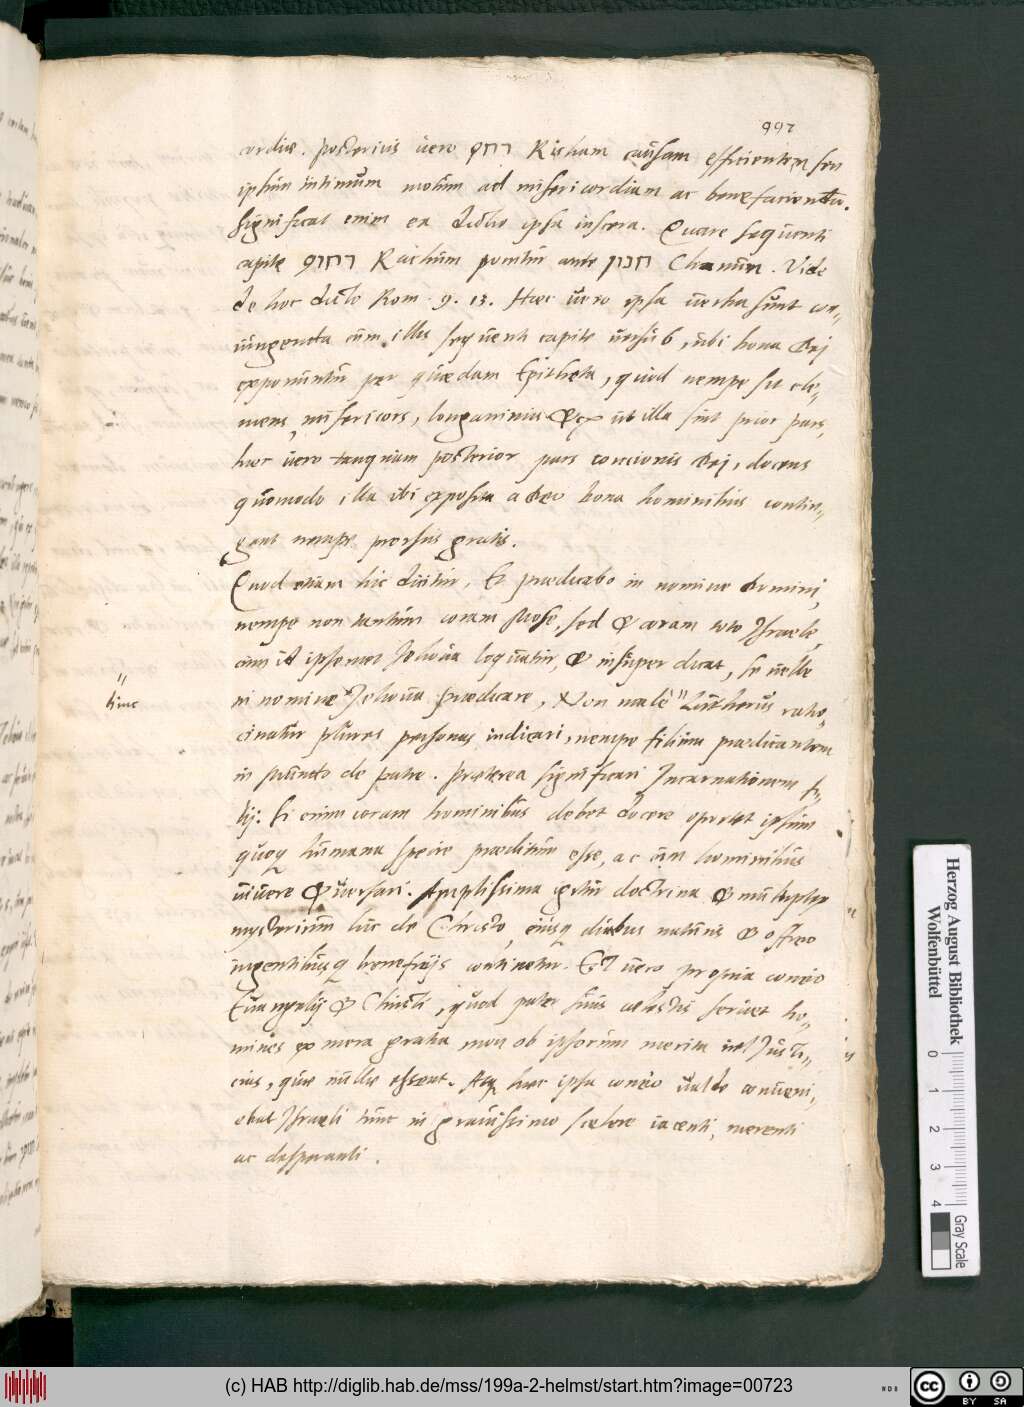 997
cordiæ. posterius uero רחם Richam causam efficientem seu
ipsum intimum motum ad misericordiam ac benefaciendum.
Significat enim ea dictio ipsa uiscera. Quare sequenti
capite רחום Rachum ponitur ante חנון Chanun. Vide
de hoc dicto Rom. 9. 15. Hæc uero ipsa uerba sunt con-
iungenda cum illis sequenti capite uersu 6, ubi bona Dei
exponuntur per quædam Epitheta, quod nempe sit cle-
mens, misericors, longanimis &c ut illa sint prior pars,
hæc uero tanquam posterior pars concionis Dei, docens
quomodo illa ibi exposita a Deo bona hominibus contin-
gant nempe prorsus gratis.
Quod etiam hic dicitur, Et prædicabo in nomine Domini,
nempe non tantum coram Mose, sed & coram toto Israele,
cum id ipsemet Jehoua loquatur, & insuper dicat, se uelle
in nomine Jehoua prædicare, Non malè " Lutherus ratio-
" hinc
cinatur plures personas indicari, nempe filium prædicantem
in mundo de patre. Præterea significari Incarnationem fi-
lij. Si enim coram hominibus debet docere oportet ipsum
quoq humana specie præditum esse, ac cum hominibus
uiuere & uersari. Amplissima igitur doctrina & multiplex
mysterium hic de Christo, eiusq duabus naturis & officio
ingentibusq beneficijs continetur. Est uero propria concio
Euangelij & Christi, quod pater suus cælestis seruet ho-
mines ex mera gratia, non ob ipsorum merita uel Justi-
cias, quæ nullæ essent. Atq hæc ipsa concio ualde conueni-
ebat Israeli tunc in grauissimo scelere iacenti, merenti
ac desperanti.
Herzog August Bibliothek
Wolfenbüttel
0 1 2 3 4
Gray Scale
(c) HAB http://diglib.hab.de/mss/199a-2-helmst/start.htm?image=00723
cc BY SA